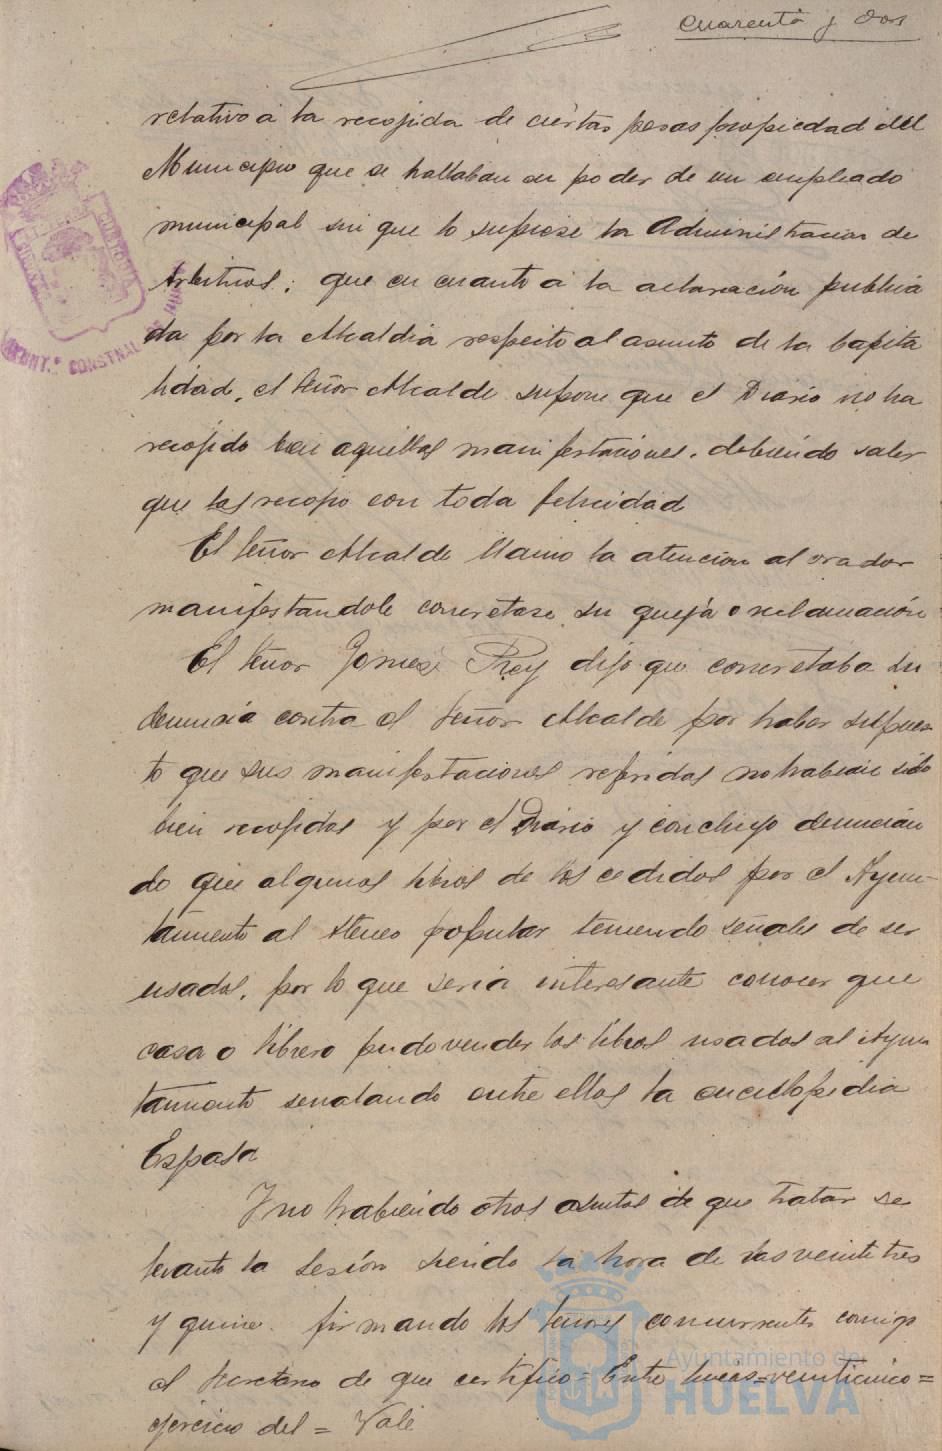 Cuarenta y dos
relativo a la recojida de ciertas pesas propiedad del
Municipio que se hallaban en poder de un empleado
municipal sin que lo supiese la Administracion de
Arbitrios; que en cuanto a la aclaración publica
da por la Alcaldia respecto al asunto de la Capita
lidad, el Señor Alcalde supone que el Diario no ha
recojido bien aquellas manifestaciones, debiendo saber
que las recojio con toda felicidad
El Señor Alcalde llamo la atencion al orador
manifestandole concretase su queja o reclamación
El Señor Gomez Rey dijo que concretaba su
denuncia contra el Señor Alcalde por haber supues
to que sus manifestaciones referidas no habian sido
bien recojidas y por el Diario y concluyo denuncian
do que algunos libros de los cedidos por el Ayun-
tamiento al Ateneo popular teniendo señales de ser
usados, por lo que seria interesante conocer que
casa o librero pudo vender los libros usados al Ayun
tamiento senalando entre ellos la enciclopedia
Espasa
Y no habiendo otros asuntos de que tratar se
levanto la Sesión siendo la hora de las veinte tres
y quince firmando los Señores concurrentes conmigo
el Secretario de que certifico = Entre lineas = veinticinco =
ejercicio del = Vale
AYUNT.º CONSTNAL DE HUELVA
Ayuntamiento de
HUELVA